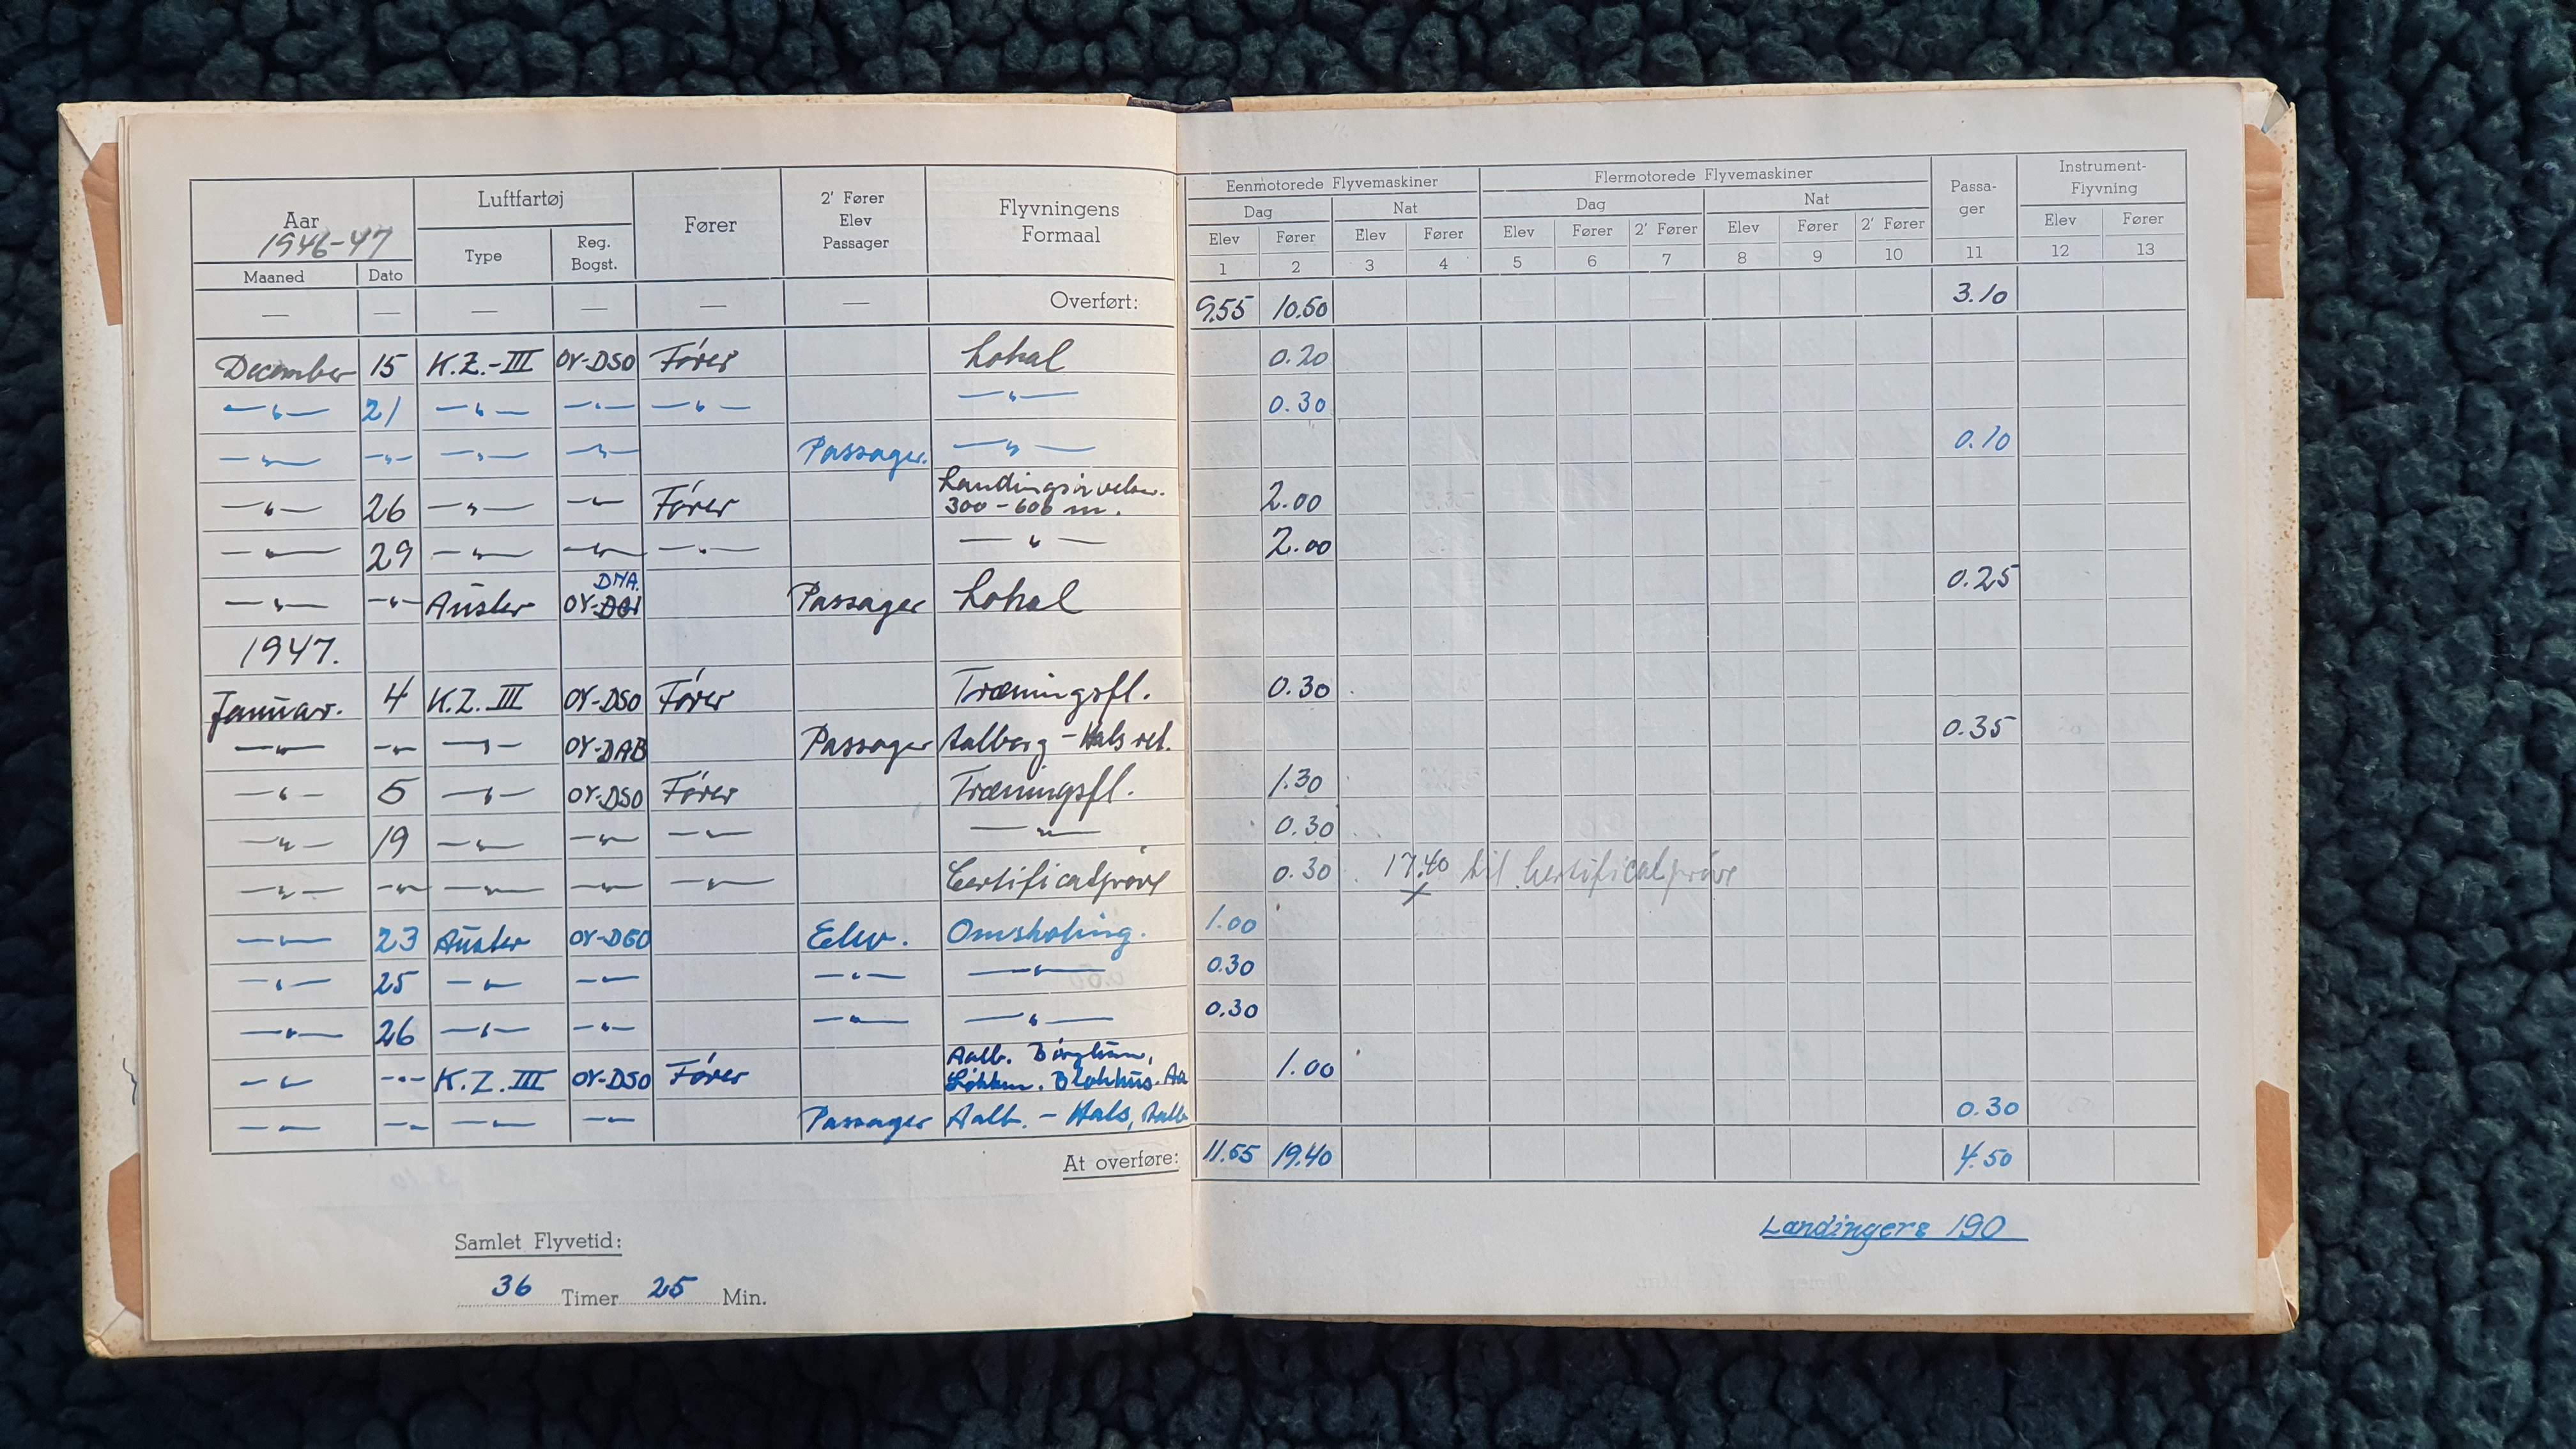 Aar 1946-47 Luftfartøj Fører 2' Fører Elev Passager Flyvningens Formaal Eenmotorede Flyvemaskiner Flermotorede Flyvemaskiner Passa-ger Instrument-Flyvning
Dag Nat Dag Nat
Maaned Dato Type Reg. Bogst. Elev Fører Elev Fører Elev Fører 2' Fører Elev Fører 2' Fører Elev Fører
1 2 3 4 5 6 7 8 9 10 11 12 13
— — — — — — Overført: 9.55 10.50 3.10
December 15 K.Z.-III OY-DSO Fører Lokal 0.20
—"— 21 —"— —"— —"— —"— 0.30
—"— —"— —"— —"— Passager. —"— 0.10
—"— 26 —"— —"— Fører Landingsøvelser. 300-600 m. 2.00
—"— 29 —"— —"— —"— —"— 2.00
—"— —"— Auster OY- DNA. Passager Lokal 0.25
1947.
Januar. 4 K.Z. III OY-DSO Fører Træningsfl. 0.30
—"— —"— —"— OY-DAB Passager Aalborg - Hals ret. 0.35
—"— 5 —"— OY-DSO Fører Træningsfl. 1.30
—"— 19 —"— —"— —"— —"— 0.30
—"— —"— —"— —"— —"— Certificatprøve 0.30 17.40 til Certificatprøve
x
—"— 23 Auster OY-DGO Elev. Omskoling. 1.00
—"— 25 —"— —"— —"— —"— 0.30
—"— 26 —"— —"— —"— —"— 0.30
—"— —"— K.Z. III OY-DSO Fører Aalb. Børglum, Løkken. Blokhus. Aa 1.00
—"— —"— —"— —"— Passager Aalb. - Hals, Aalb 0.30
At overføre: 11.55 19.40 4.50
Landingere 190
Samlet Flyvetid:
36 Timer 25 Min.